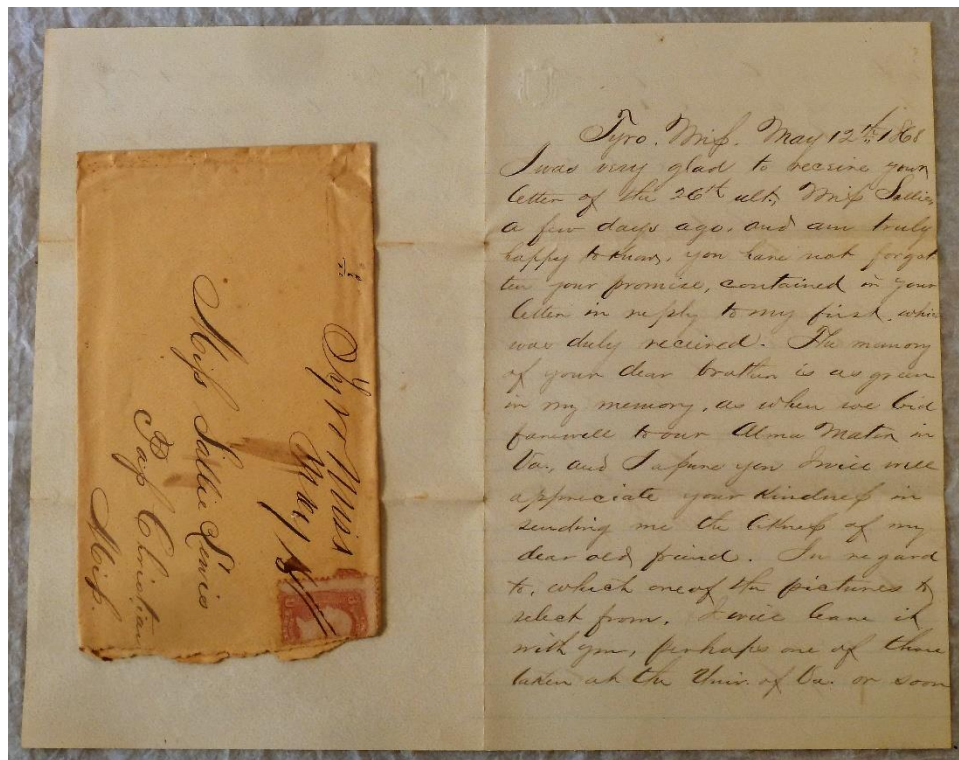 Tyro. Miſs. May 12th 1868
I was very glad to receive your
letter of the 26th ult, Miſs Sallie,
a few days ago, and am truly
happy to know, you have not forgot
ten your promise, contained in your
letter in reply to my first, whic
was duly received. The memory
of your dear brother is as green
in my memory, as when we bid
farewell to our Alma Mater in
Va., and I aſsure you I will
appreciate your kindneſs in
sending me the likeneſs of my
dear old friend. In regard
to, which one of the pictures to
select from, I will leave it
with you, perhaps one of those
taken at the Univ. of Va. or soon
Tyro Miss
May
Miſs Sallie Lewis
Paſs Christian
Miſs.